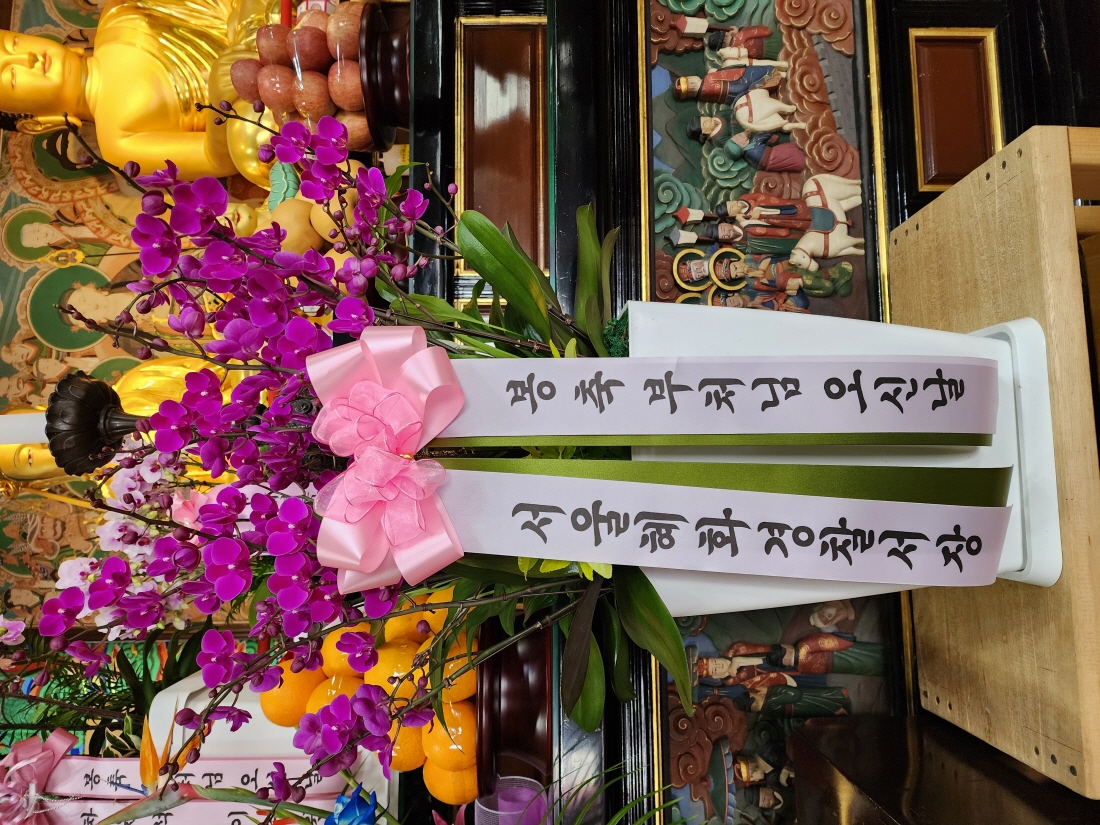 봉축 부처님 오신날
서울혜화경찰서장
봉축